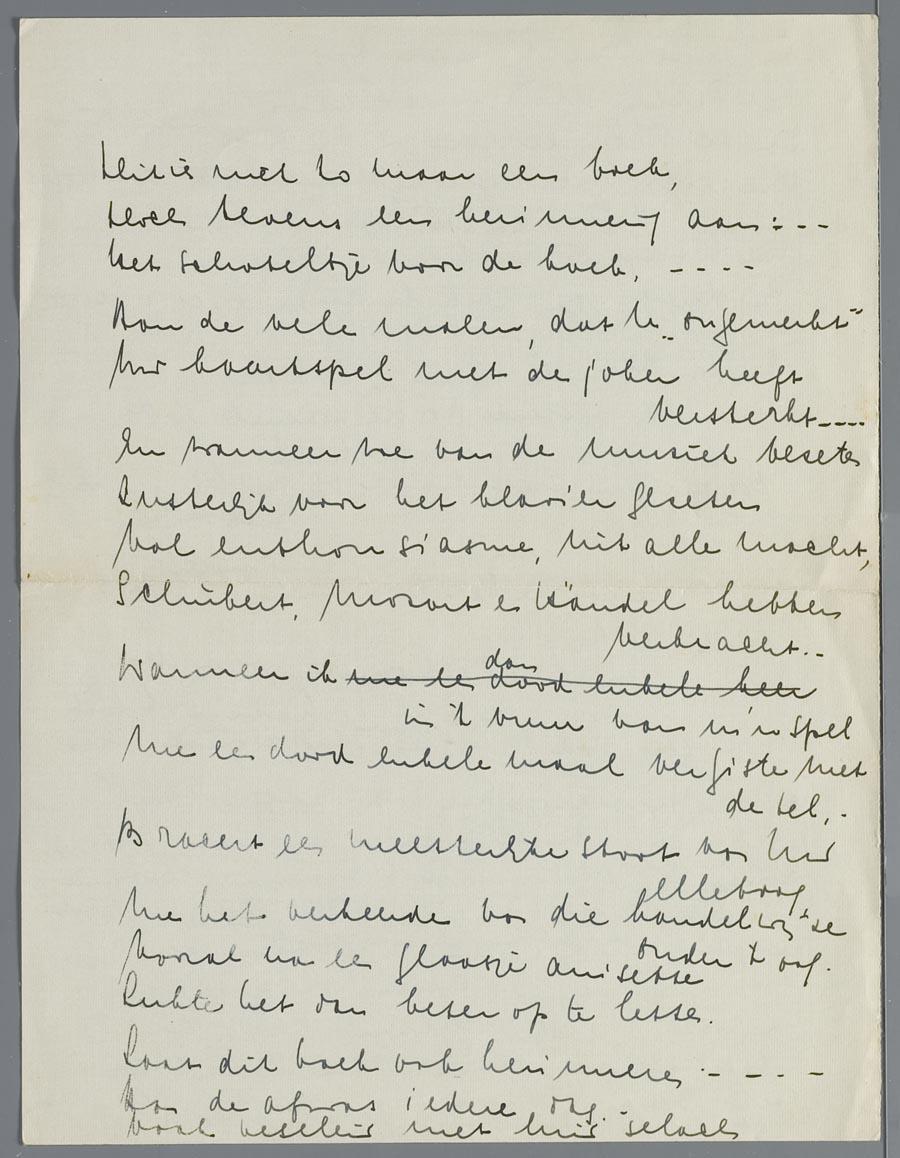 Dit is niet zo maar een boek,
Doch tevens een herinnering aan: - - -
Het schoteltje voor de koek, - - - -
Aan de vele malen, dat U „ongemerkt"
Uw kaartspel met de joker heeft
versterkt - - - -
En wanneer we van de muziek bezeten
Zusterlijk voor het klavier gezeten
Vol enthousiasme, uit alle macht,
Schubert, Mozart en Händel hebben
verkracht. - -
Wanneer ik me een dood enkele keer
dan
in 't vuur van m'n spel
Me een dood enkele maal vergiste met
de tel, -
Bracht een meesterlijke stoot van Uw
elleboog
Me het verkeerde van die handelwijze
onder 't oog.
Vooral na een glaasje anisette
Lukte het dan beter op te letten.
Laat dit boek ook herinneren - - - -
Aan de afwas iedere dag. -